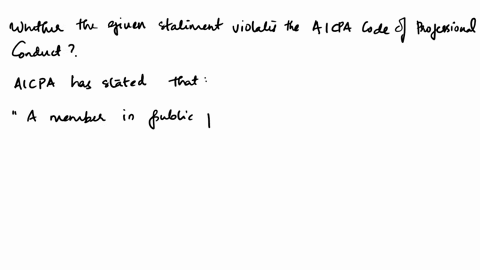 Whether the given statiment violates the AICPA Code of Professional
Conduct ?.
AICPA has stated that :
" A member in public